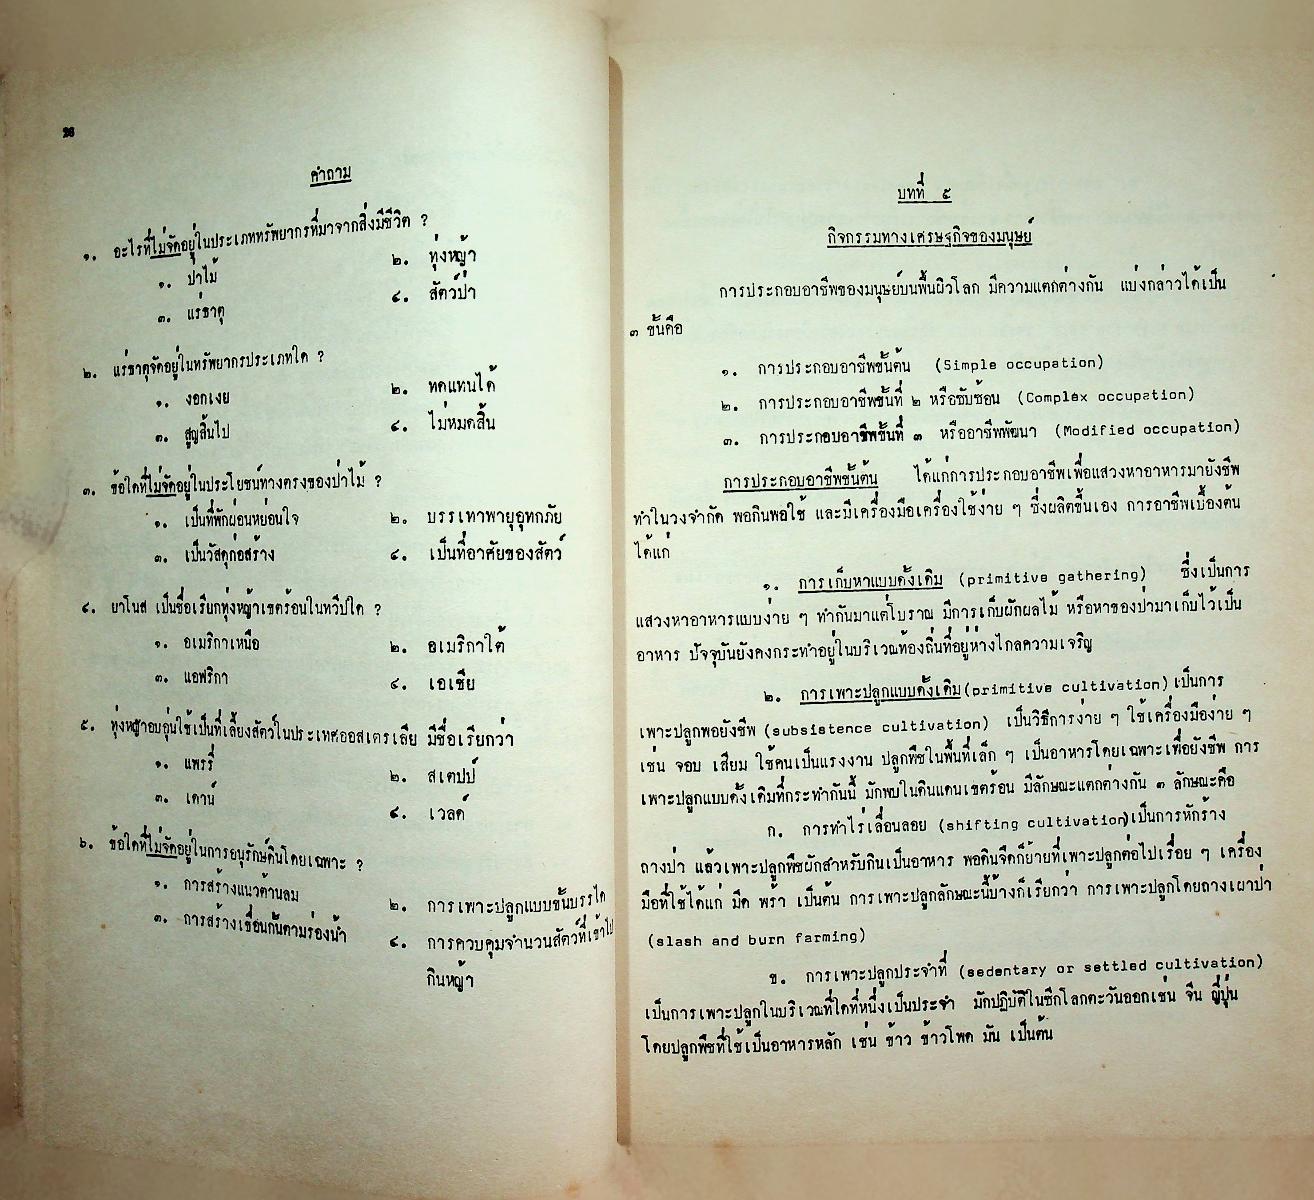 ๒๖
คำถาม
๑. อะไรที่ไม่จัดอยู่ในประเภททรัพยากรที่มาจากสิ่งมีชีวิต ?
๑. ป่าไม้ ๒. ทุ่งหญ้า
๓. แร่ธาตุ ๔. สัตว์ป่า
๒. แร่ธาตุจัดอยู่ในทรัพยากรประเภทใด ?
๑. งอกเงย ๒. ทดแทนได้
๓. สูญสิ้นไป ๔. ไม่หมดสิ้น
๓. ข้อใดที่ไม่จัดอยู่ในประโยชน์ทางตรงของป่าไม้ ?
๑. เป็นที่พักผ่อนหย่อนใจ ๒. บรรเทาพายุอุทกภัย
๓. เป็นวัสดุก่อสร้าง ๔. เป็นที่อาศัยของสัตว์
๔. ยาโนส เป็นชื่อเรียกทุ่งหญ้าเขตร้อนในทวีปใด ?
๑. อเมริกาเหนือ ๒. อเมริกาใต้
๓. แอฟริกา ๔. เอเซีย
๕. ทุ่งหญ้าอบอุ่นใช้เป็นที่เลี้ยงสัตว์ในประเทศออสเตรเลีย มีชื่อเรียกว่า
๑. แพรรี่ ๒. สเตปป์
๓. เดาน์ ๔. เวลด์
๖. ข้อใดที่ไม่จัดอยู่ในการอนุรักษ์ดินโดยเฉพาะ ?
๑. การสร้างแนวต้านลม ๒. การเพาะปลูกแบบขั้นบรรได
๓. การสร้างเขื่อนกั้นตามร่องน้ำ ๔. การควบคุมจำนวนสัตว์ที่เข้าไป
กินหญ้า
บทที่ ๕
กิจกรรมทางเศรษฐกิจของมนุษย์
การประกอบอาชีพของมนุษย์บนพื้นผิวโลก มีความแตกต่างกัน แบ่งกล่าวได้เป็น
๓ ขั้นคือ
๑. การประกอบอาชีพขั้นต้น (Simple occupation)
๒. การประกอบอาชีพขั้นที่ ๒ หรือซับซ้อน (Complex occupation)
๓. การประกอบอาชีพขั้นที่ ๓ หรืออาชีพพัฒนา (Modified occupation)
การประกอบอาชีพขั้นต้น ได้แก่การประกอบอาชีพเพื่อแสวงหาอาหารมายังชีพ
ทำในวงจำกัด พอกินพอใช้ และมีเครื่องมือเครื่องใช้ง่าย ๆ ซึ่งผลิตขึ้นเอง การอาชีพเบื้องต้น
ได้แก่
๑. การเก็บหาแบบดั้งเดิม (primitive gathering) ซึ่งเป็นการ
แสวงหาอาหารแบบง่าย ๆ ทำกันมาแต่โบราณ มีการเก็บผักผลไม้ หรือหาของป่ามาเก็บไว้เป็น
อาหาร ปัจจุบันยังคงกระทำอยู่ในบริเวณท้องถิ่นที่อยู่ห่างไกลความเจริญ
๒. การเพาะปลูกแบบดั้งเดิม(primitive cultivation) เป็นการ
เพาะปลูกพอยังชีพ (subsistence cultivation) เป็นวิธีการง่าย ๆ ใช้เครื่องมือง่าย ๆ
เช่น จอบ เสียม ใช้คนเป็นแรงงาน ปลูกพืชในพื้นที่เล็ก ๆ เป็นอาหารโดยเฉพาะเพื่อยังชีพ การ
เพาะปลูกแบบดั้งเดิมที่กระทำกันนี้ มักพบในดินแดนเขตร้อน มีลักษณะแตกต่างกัน ๓ ลักษณะคือ
ก. การทำไร่เลื่อนลอย (shifting cultivation)เป็นการหักร้าง
ถางป่า แล้วเพาะปลูกพืชผักสำหรับกินเป็นอาหาร พอดินจืดก็ย้ายที่เพาะปลูกต่อไปเรื่อย ๆ เครื่อง
มือที่ใช้ได้แก่ มีด พร้า เป็นต้น การเพาะปลูกลักษณะนี้บ้างก็เรียกว่า การเพาะปลูกโดยถางเผาป่า
(slash and burn farming)
ข. การเพาะปลูกประจำที่ (sedentary or settled cultivation)
เป็นการเพาะปลูกในบริเวณที่ใดที่หนึ่งเป็นประจำ มักปฏิบัติในซีกโลกตะวันออกเช่น จีน ญี่ปุ่น
โดยปลูกพืชที่ใช้เป็นอาหารหลัก เช่น ข้าว ข้าวโพด มัน เป็นต้น